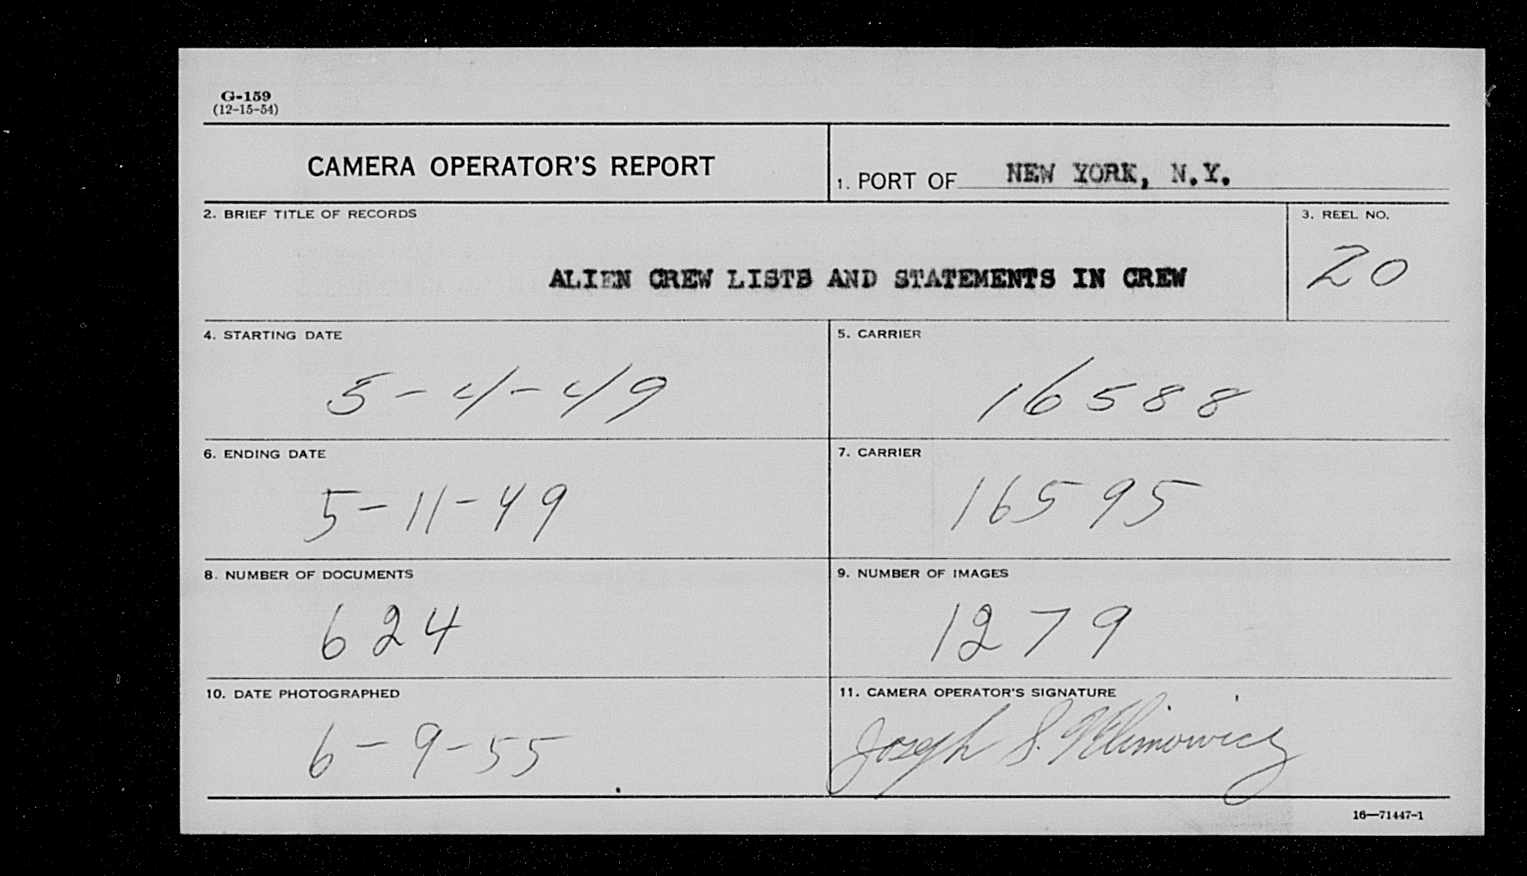 G-159
(12-15-54)
CAMERA OPERATOR'S REPORT
1. PORT OF NEW YORK, N.Y.
2. BRIEF TITLE OF RECORDS
ALIEN CREW LISTS AND STATEMENTS IN CREW
3. REEL NO.
20
4. STARTING DATE
5-4-49
5. CARRIER
16588
6. ENDING DATE
5-11-49
7. CARRIER
16595
8. NUMBER OF DOCUMENTS
624
9. NUMBER OF IMAGES
1279
10. DATE PHOTOGRAPHED
6-9-55
11. CAMERA OPERATOR'S SIGNATURE
Joseph S. Klimowicz
16—71447-1